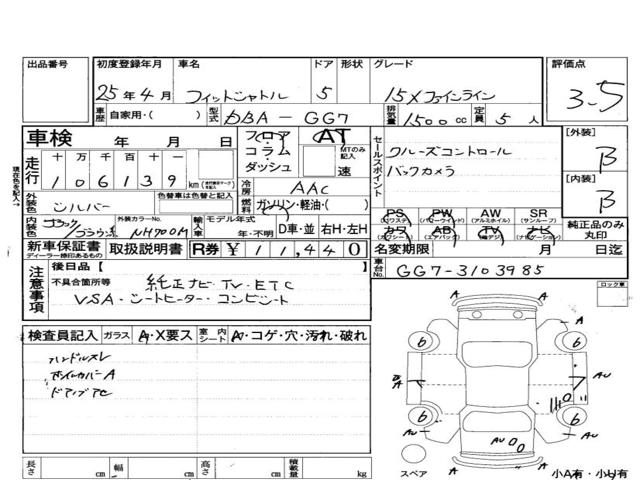 出品番号 初度登録年月 車名 ドア 形状 グレード 評価点
25年4月 フィットシャトル 5 15Xファインライン 3.5
車歴 自家用・( ) 型式 DBA-GG7 排気量 1500cc 定員 5人
車検 年 月 日 フロア・コラム・ダッシュ AT MTのみ記入 速
セールスポイント クルーズコントロール
バックカメラ
[外装] B
[内装] B
走行 十万千百十一
106139 km
冷房 AAC
燃料 ガソリン・軽油・( )
外装色 シルバー 色替車は色替と記入
内装色 ブラック ブラウン系 外装カラーNo. NH700M 輸入車 モデル年式 年・不明 D車・並 右H・左H
PS (パワステ) PW (パワーウインド) AW (アルミホイル) SR (サンルーフ)
カワ (カワシート) AB (エアバック) TV (電波デジ) ナビ (ナビゲーション) 純正品のみ丸印
新車保証書 ディーラー捺印あるもの 取扱説明書 R券 ¥11,440 名変期限 月 日迄
車台No. GG7-3103985
注意事項 後日品【 】
不具合箇所等 純正ナビ・TV・ETC
VSA・シートヒーター・コンビシート
ロック車
検査員記入 ガラス A・X要ス 室内シート A・コゲ・穴・汚れ・破れ
ハンドルスレ
ホイルカバーA
ドアノブアセ
A
A
A
6
6
6
6
A
AU
AU
AU
AU
A
A
スペア
小A有・小U有
長さ cm 幅 cm 高さ cm 積載量 kg